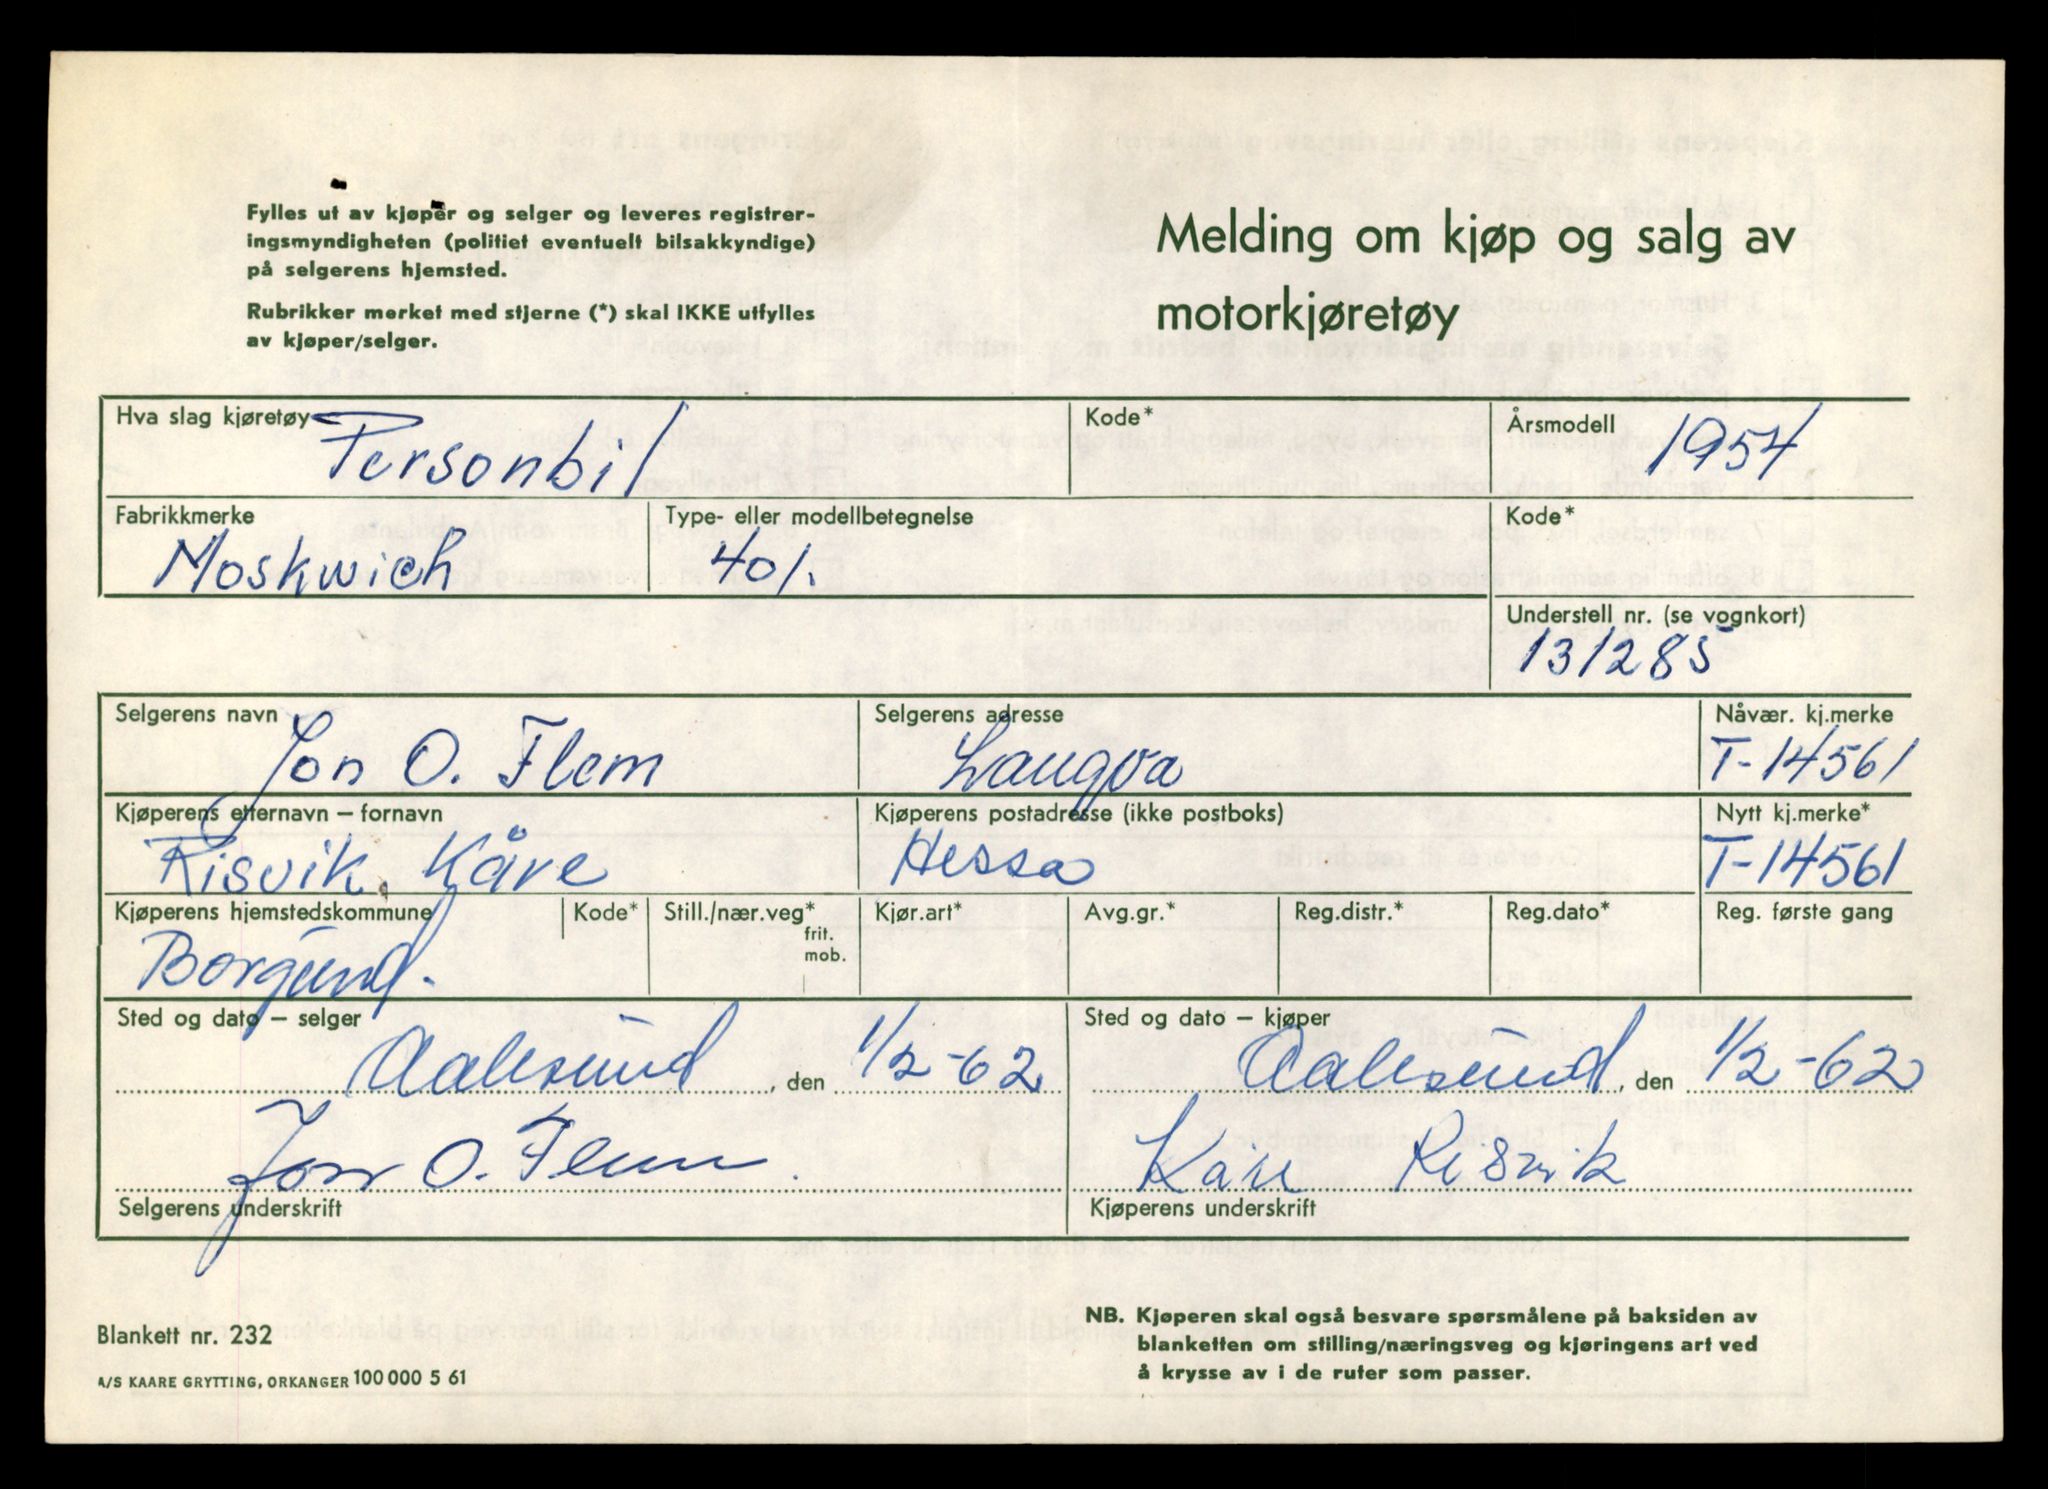 Fylles ut av kjøper og selger og leveres registrer-
ingsmyndigheten (politiet eventuelt bilsakkyndige)
på selgerens hjemsted.
Rubrikker merket med stjerne (*) skal IKKE utfylles
av kjøper/selger.
Melding om kjøp og salg av
motorkjøretøy
Hva slag kjøretøy Personbil
Kode*
Årsmodell 1954
Fabrikkmerke
Moskwich
Type- eller modellbetegnelse
401.
Kode*
Understell nr. (se vognkort)
131285
Selgerens navn
Jon O. Flem
Selgerens adresse
Langva
Nåvær. kj.merke
T-14561
Kjøperens etternavn – fornavn
Risvik, Kåre
Kjøperens postadresse (ikke postboks)
Hessa
Nytt kj.merke*
T-14561
Kjøperens hjemstedskommune
Borgund.
Kode*
Still./nær.veg*
frit.
mob.
Kjør.art*
Avg.gr.*
Reg.distr.*
Reg.dato*
Reg. første gang
Sted og dato – selger
Aalesund, den 1/2-62
Jon O. Flem
Selgerens underskrift
Sted og dato – kjøper
Aalesund, den 1/2-62
Kåre Risvik
Kjøperens underskrift
Blankett nr. 232
A/S KAARE GRYTTING, ORKANGER 100 000 5 61
NB. Kjøperen skal også besvare spørsmålene på baksiden av
blanketten om stilling/næringsveg og kjøringens art ved
å krysse av i de ruter som passer.